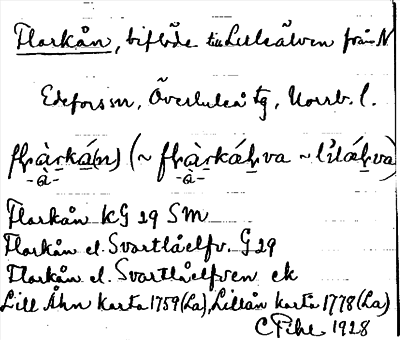 Flarkån, biflöde till Lilleälven från N.
Edefors sn, Överluleå tg, Norrb. l.
Flarkån KG 29 SM
Flarkån el. Svartlåelfv. G 29
Flarkån el. Svartlåelfven ek
Lill Åhn karta 1759 (La), Lillån karta 1778 (La)
C Pihl 1928